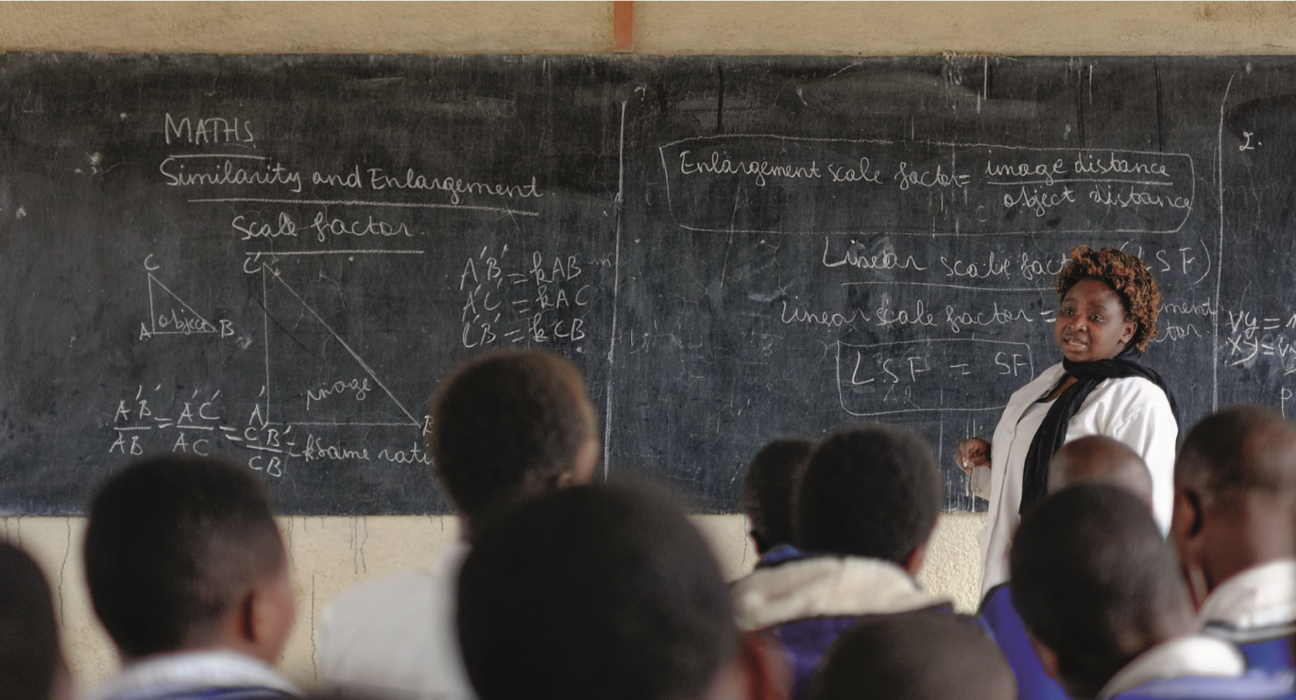 MATHS
Similarity and Enlargement
scale factor
C
A object B
C'
image
A'
A'B' = kAB
A'C' = kAC
C'B' = kCB
A'B'/AB = A'C'/AC = C'B'/CB = k same
Enlargement scale factor = image distance/object distance
Linear scale SF)
Linear scale factor =
LSF = SF
2.